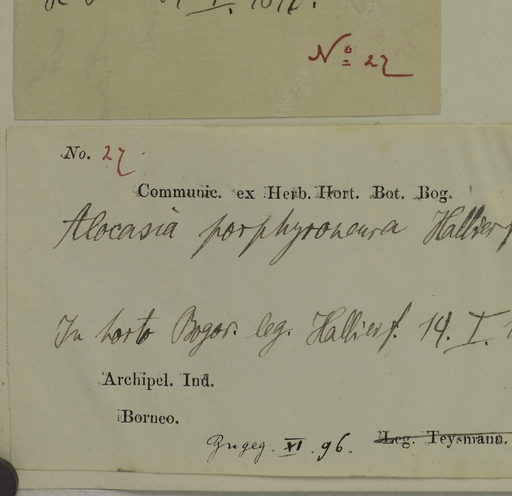 Nº 27
No. 27
Communic. ex Herb. Hort. Bot. Bog.
Alocasia porphyroneura Hallier f
In horto Bogor. leg. Hallier f. 14. I.
Archipel. Ind.
Borneo.
XI. 96.
Leg. Teysmann.